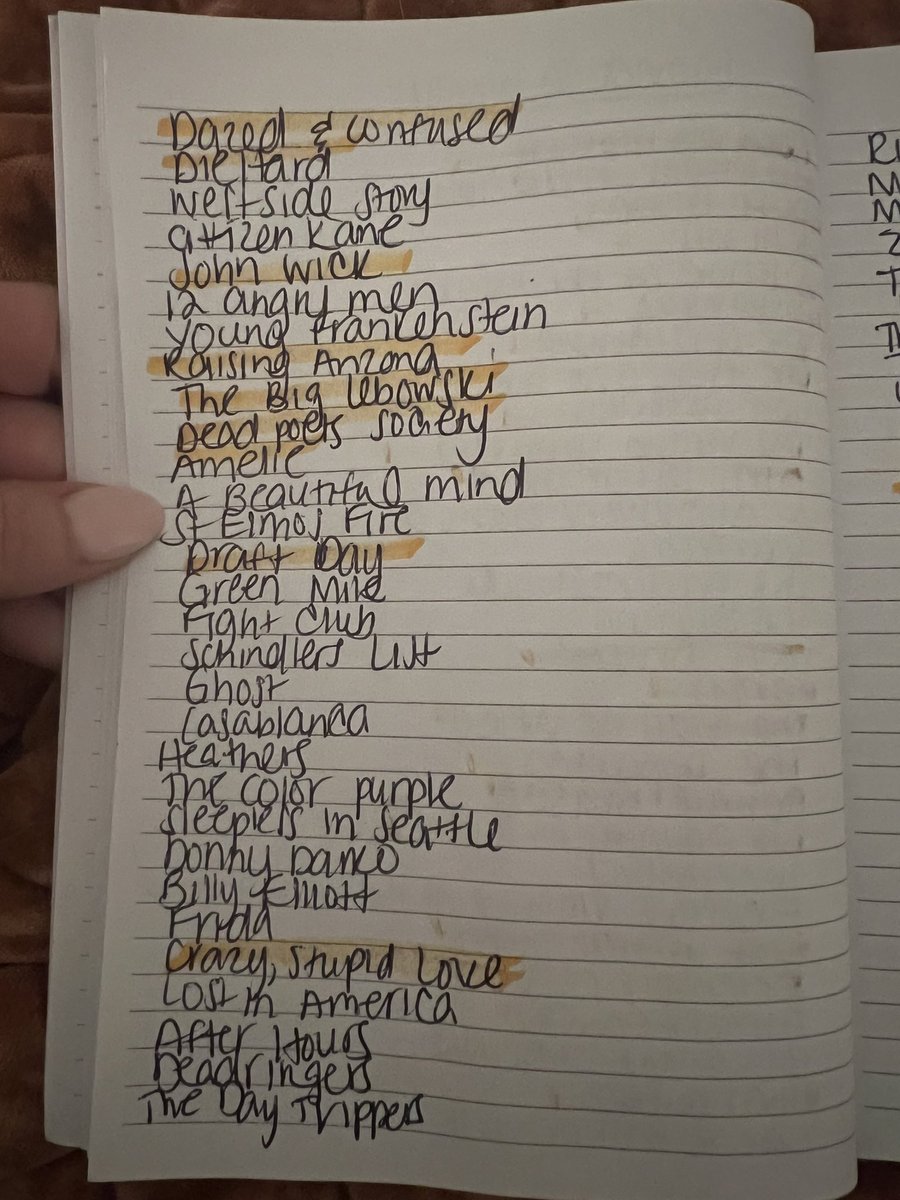 Dazed & confused
Die Hard
West side story
citizen Kane
John Wick
12 angry men
Young Frankenstein
Raising Arizona
The Big Lebowski
Dead poets society
Amelie
A Beautiful mind
St Elmos Fire
Draft Day
Green Mile
Fight Club
Schindlers List
Ghost
Casablanca
Heathers
The color purple
Sleepless in Seattle
Donny Darko
Billy Elliott
Frida
Crazy, Stupid Love
Lost in America
After Hours
Deadringers
The Day Trippers